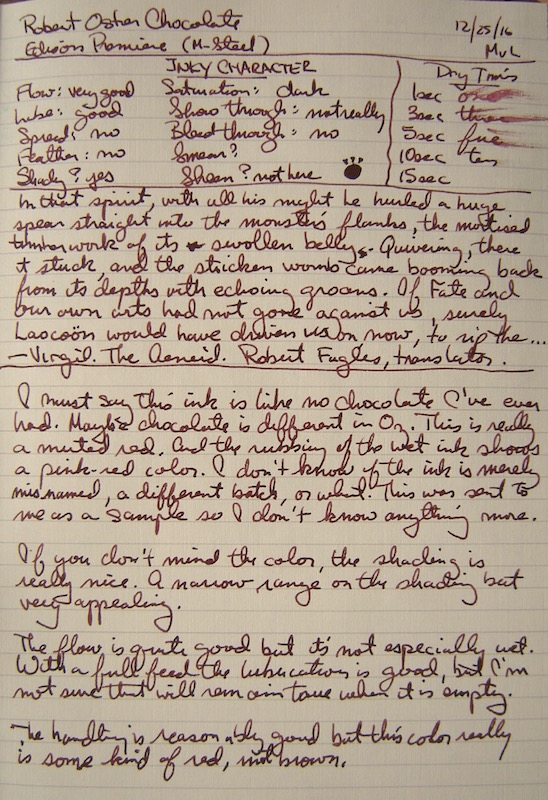 Robert Oster Chocolate
12/25/16
Edison Premiere (M-Steel)
MvL
INKY CHARACTER
Dry Times
Flow: very good
Saturation: dark
1sec one
Lube: good
Show through: not really
3sec three
Spread: no
Bleed through: no
5sec five
Feather: no
Smear?
10sec ten
Shady? yes
Sheen? not here
15sec
In that spirit, with all his might he hurled a huge
spear straight into the monster's flanks, the mortised
timberwork of its swollen belly. Quivering, there
it stuck, and the stricken womb came booming back
from its depths with echoing groans. If Fate and
our own wits had not gone against us, surely
Laocoön would have driven us on now, to rip the...
—Virgil. The Aeneid. Robert Fagles, translator.
I must say this ink is like no chocolate I've ever
had. Maybe chocolate is different in Oz. This is really
a muted red. And the rubbing of the wet ink shows
a pink-red color. I don't know if the ink is merely
misnamed, a different batch, or what. This was sent to
me as a sample so I don't know anything more.
If you don't mind the color, the shading is
really nice. A narrow range on the shading but
very appealing.
The flow is quite good but it's not especially wet.
With a full feed the lubrication is good, but I'm
not sure that will remain true when it is empty.
The handling is reasonably good but this color really
is some kind of red, not brown.